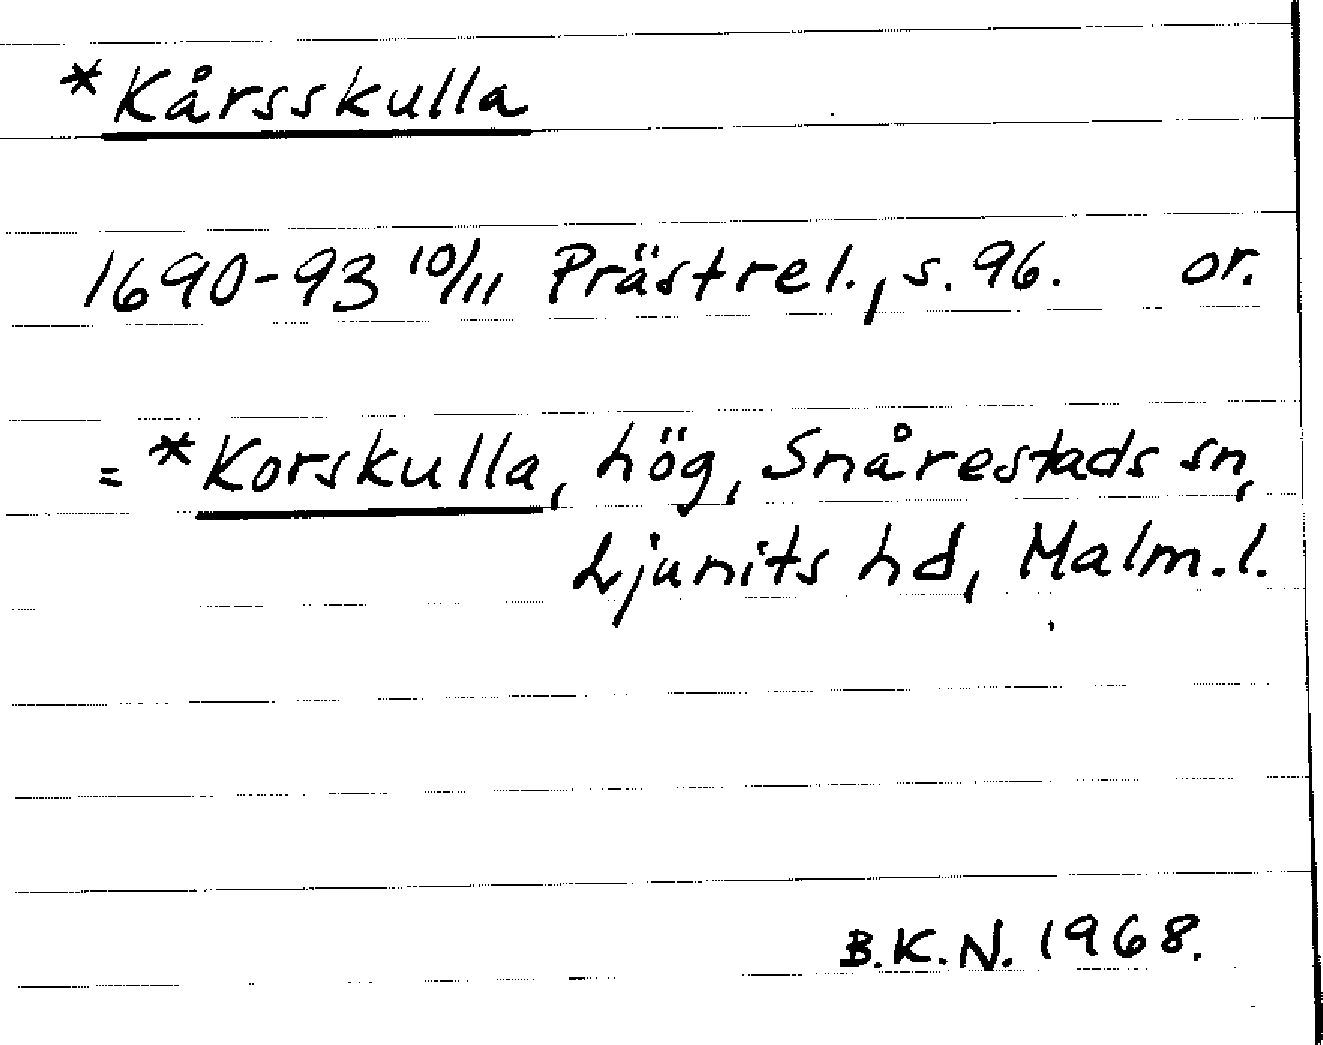 *Kårsskulla
1690-93 10/11 Prästrel., s. 96. or.
= *Korskulla, hög, Snårestads sn,
Ljunits hd, Malm.l.
B.K.N. 1968.